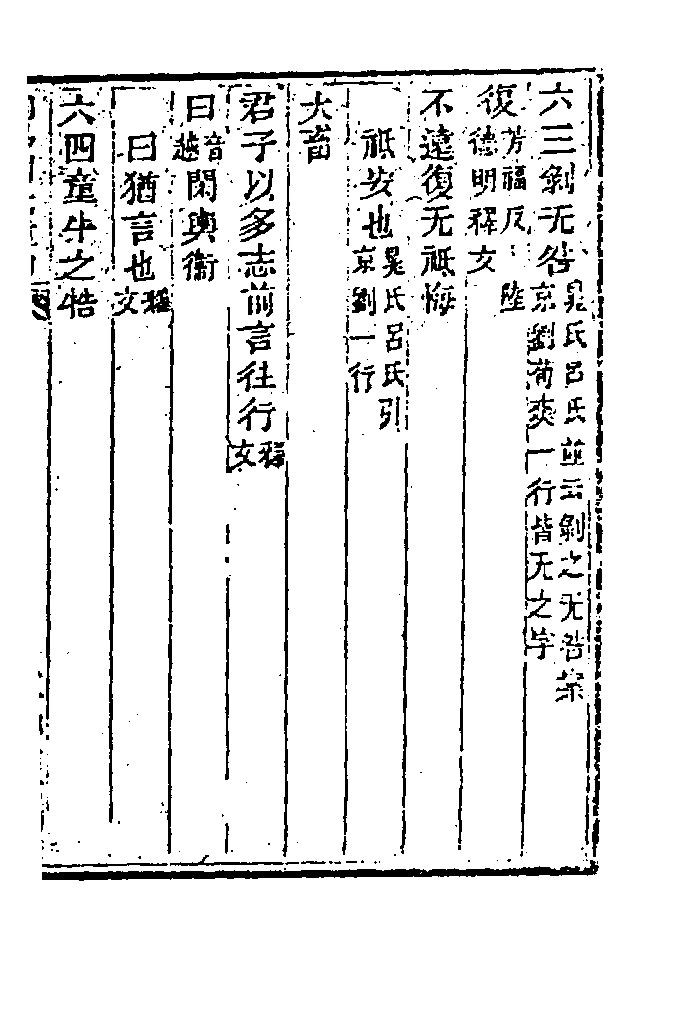 六三剝无咎晁氏呂氏並云剝之无咎案京劉荀爽一行皆无之字
復芳福反陸德明釋文
不遠復无祗悔
祗安也晁氏呂氏引京劉一行
大畜
君子以多志前言往行釋文
曰音越閑輿衞
曰猶言也釋文
六四童牛之牿